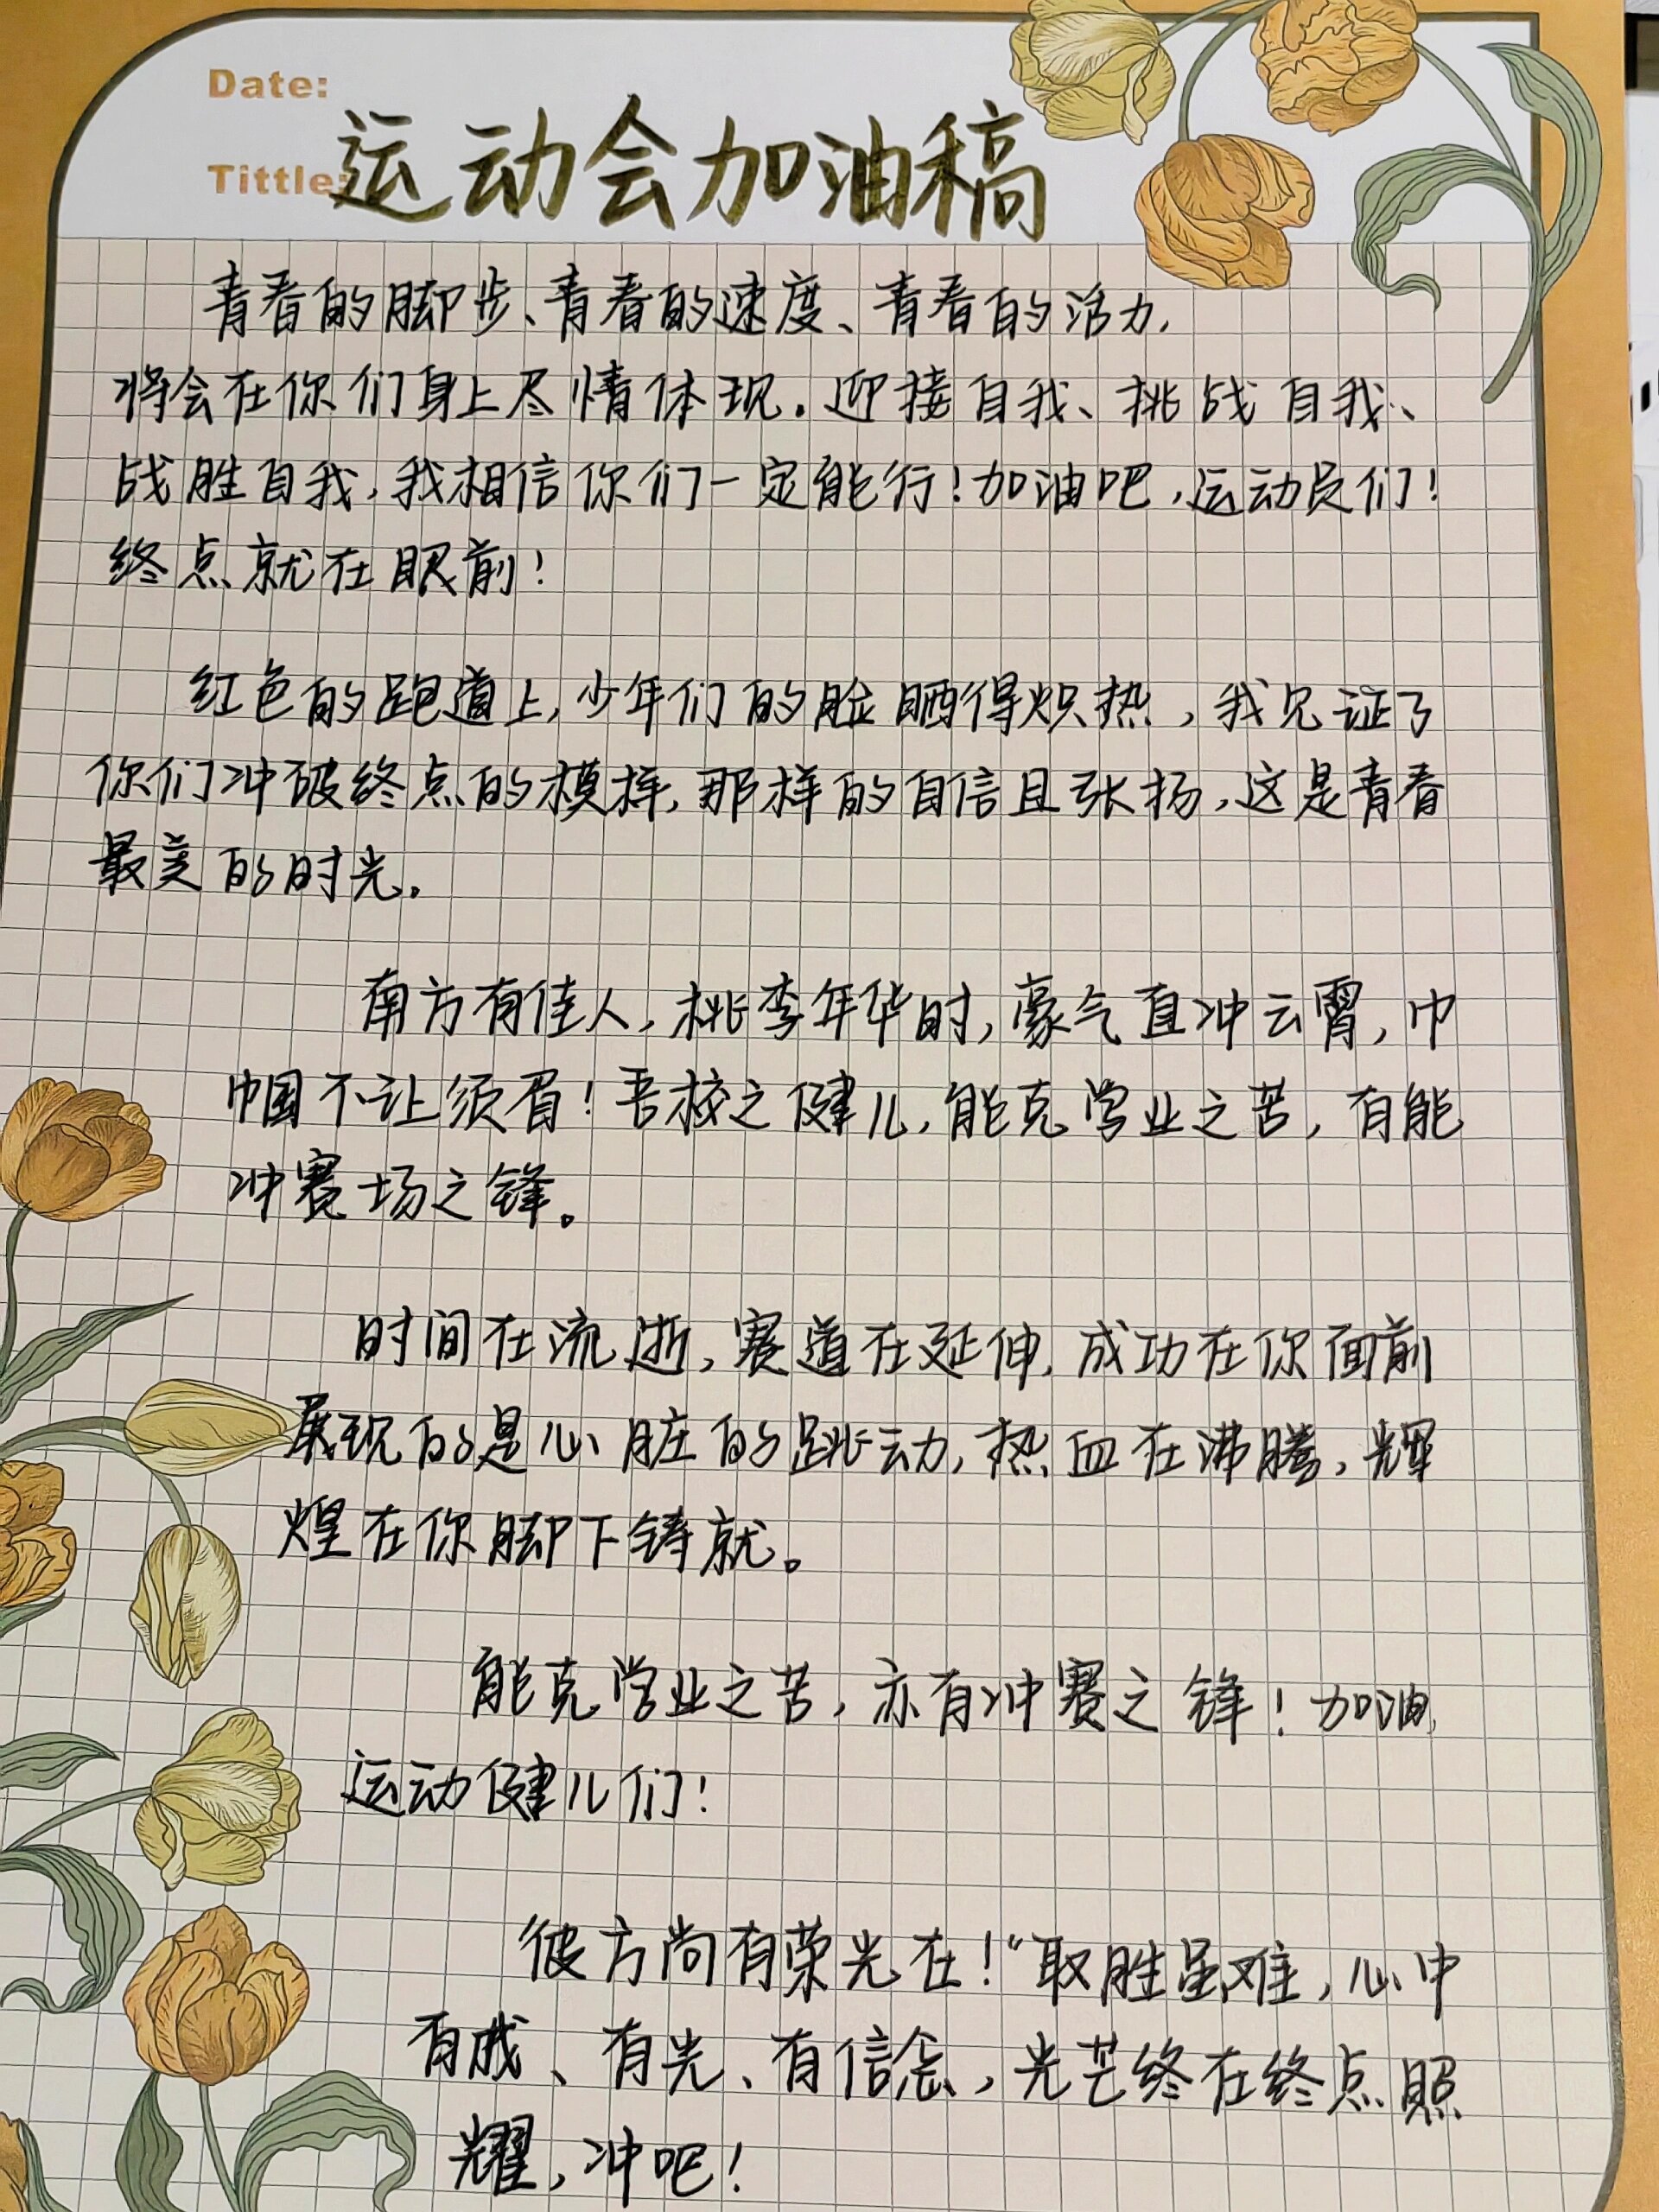 Date:
Tittle:
运动会加油稿
青春的脚步、青春的速度、青春的活力,
将会在你们身上尽情体现. 迎接自我、挑战自我、
战胜自我, 我相信你们一定能行!加油吧,运动员们!
终点就在眼前!
红色的跑道上,少年们的脸晒得炽热,我见证了
你们冲破终点的模样,那样的自信且张扬,这是青春
最美的时光.
南方有佳人,桃李年华时,豪气直冲云霄,巾
帼不让须眉!吾校之健儿,能克学业之苦,有能
冲赛场之锋。
时间在流逝,赛道在延伸,成功在你面前
展现的是心脏的跳动,热血在沸腾,辉
煌在你脚下铸就。
能克学业之苦,亦有冲赛之锋!加油,
运动健儿们!
彼方尚有荣光在!“取胜虽难,心中
有戚、有光、有信念,光芒终在终点照
耀,冲吧!